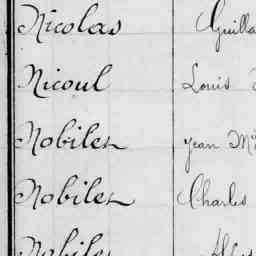 Nicolas Guilla
Nicoul Louis
Nobilet Jean M
Nobilet Charles